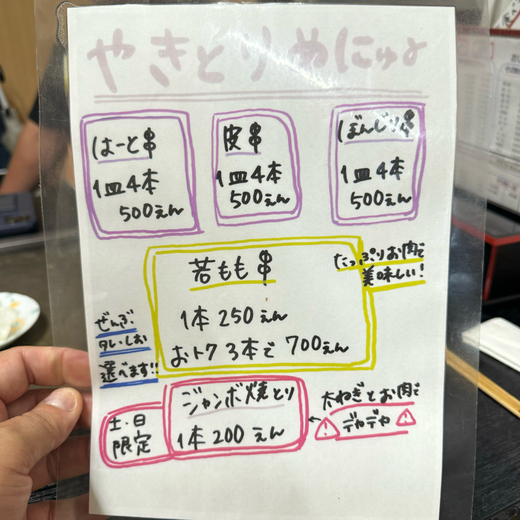 やきとりめにゅぅ
はーと串
1皿4本
500えん
皮串
1皿4本
500えん
ぼんじり串
1皿4本
500えん
若もも串
1本 250えん
おトク 3本で 700えん
たっぷりお肉で
美味しい!
ぜんぶ
タレ・しお
選べます!!
土・日
限定
ジャンボ焼とり
1本 200えん
大ねぎとお肉で
デカデカ